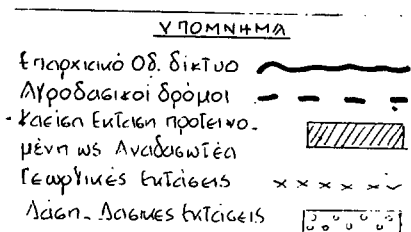 ΥΠΟΜΝΗΜΑ
Επαρχιακό Οδ. δίκτυο
Αγροδασικοί δρόμοι
- Καείσα Εκταση προτεινο-
μένη ως Αναδασωτέα
Γεωργικές Εκτάσεις
Δάση - Δασικες Εκτάσεις